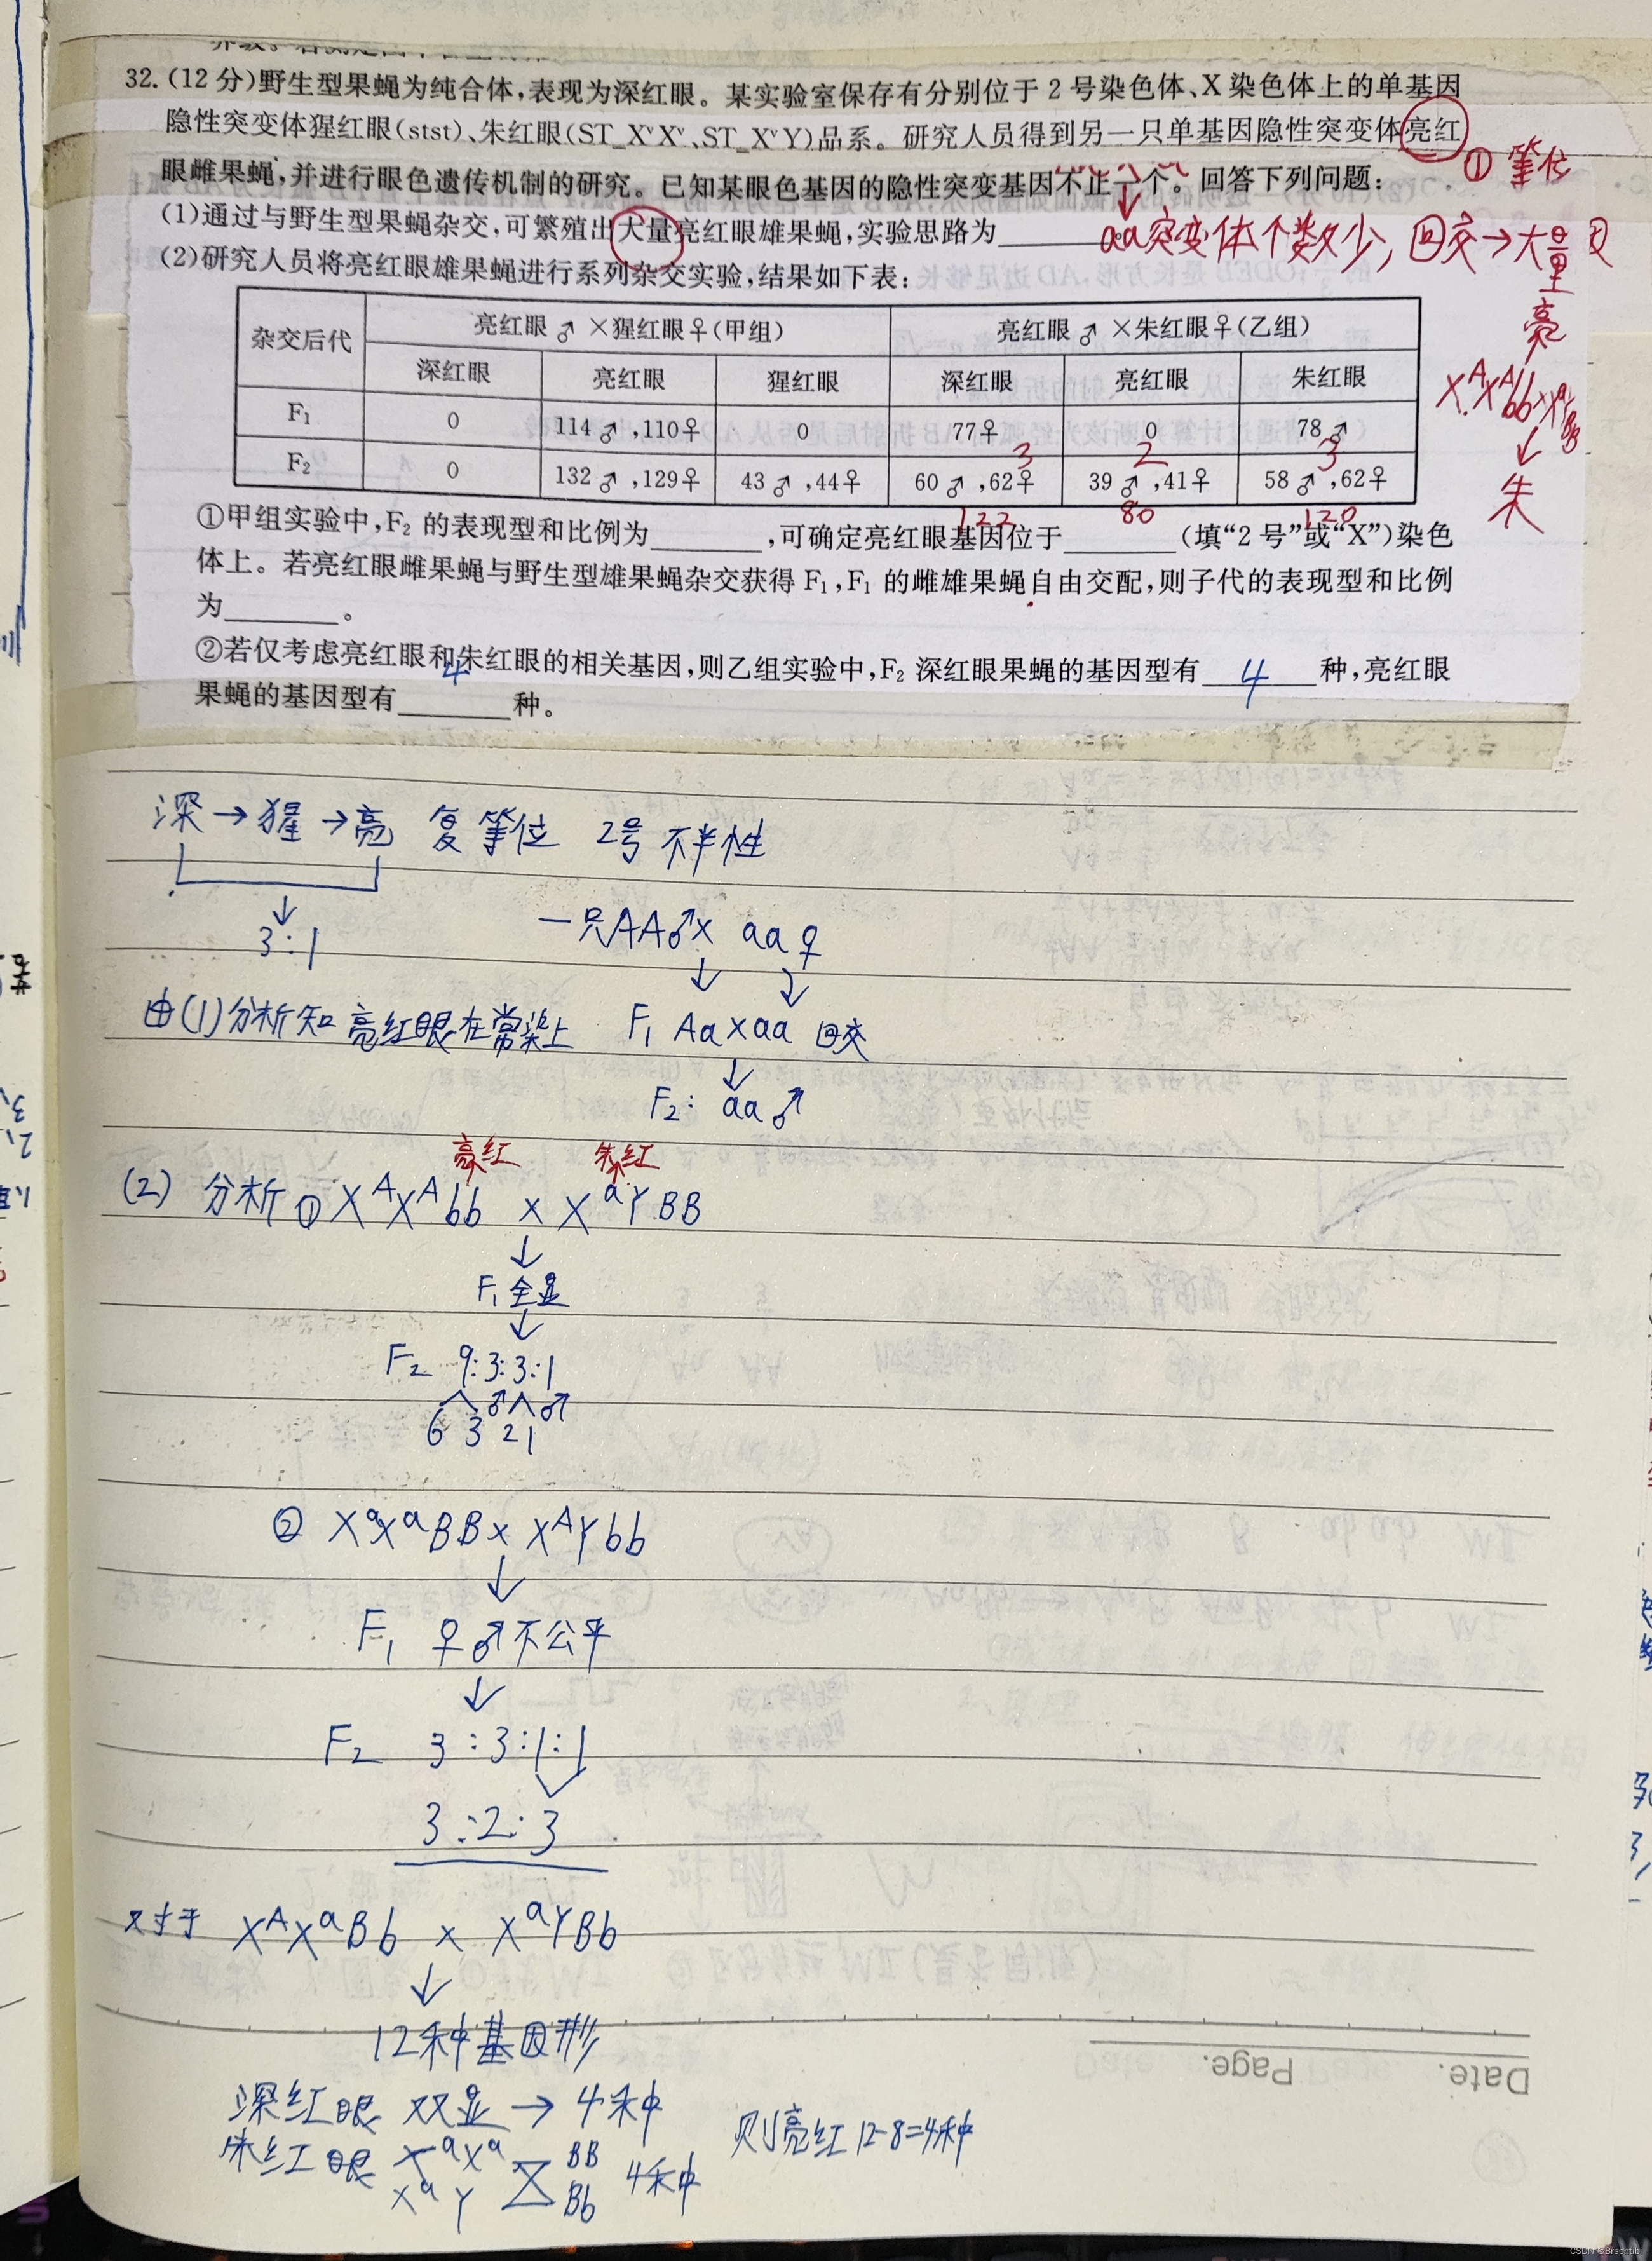 32.(12分)野生型果蝇为纯合体,表现为深红眼。某实验室保存有分别位于2号染色体、X染色体上的单基因
隐性突变体猩红眼(stst)、朱红眼(ST_XᵛXᵛ、ST_XᵛY)品系。研究人员得到另一只单基因隐性突变体亮红
眼雌果蝇,并进行眼色遗传机制的研究。已知某眼色基因的隐性突变基因不止一个。回答下列问题:
①等位
(1)通过与野生型果蝇杂交,可繁殖出大量亮红眼雄果蝇,实验思路为
aa突变体个数少,回交→大量
(2)研究人员将亮红眼雄果蝇进行系列杂交实验,结果如下表:
杂交后代 亮红眼♂×猩红眼♀(甲组) 亮红眼♂×朱红眼♀(乙组)
深红眼 亮红眼 猩红眼 深红眼 亮红眼 朱红眼
F₁ 0 114♂,110♀ 0 77♀ 0 78♂
3 2 3
F₂ 0 132♂,129♀ 43♂,44♀ 60♂,62♀ 39♂,41♀ 58♂,62♀
122 80 120
亮
XᴬXᴬbb×XᵃYBB
朱
①甲组实验中,F₂的表现型和比例为______,可确定亮红眼基因位于______(填“2号”或“X”)染色
体上。若亮红眼雌果蝇与野生型雄果蝇杂交获得F₁,F₁的雌雄果蝇自由交配,则子代的表现型和比例
为______。
②若仅考虑亮红眼和朱红眼的相关基因,则乙组实验中,F₂深红眼果蝇的基因型有 4 种,亮红眼
果蝇的基因型有 4 种。
深→猩→亮 复等位 2号 不伴性
3:1
一只AA♂× aa♀
由(1)分析知亮红眼在常染上 F₁ Aa×aa 回交
F₂: aa♂
亮红 朱红
(2) 分析① XᴬXᴬbb × XᵃYBB
F₁全显
F₂ 9:3:3:1
6 3 ♂ 2 1 ♂
② XᵃXᵃBB× XᴬYbb
F₁ ♀♂不公平
F₂ 3:3:1:1
3:2:3
对于 XᴬXᵃBb × XᵃYBb
12种基因形
深红眼 双显→4种
朱红眼 XᵃXᵃ BB
XᵃY Bb 4种
则亮红12-8=4种
Date. Page.
CSDN @Brsentibi